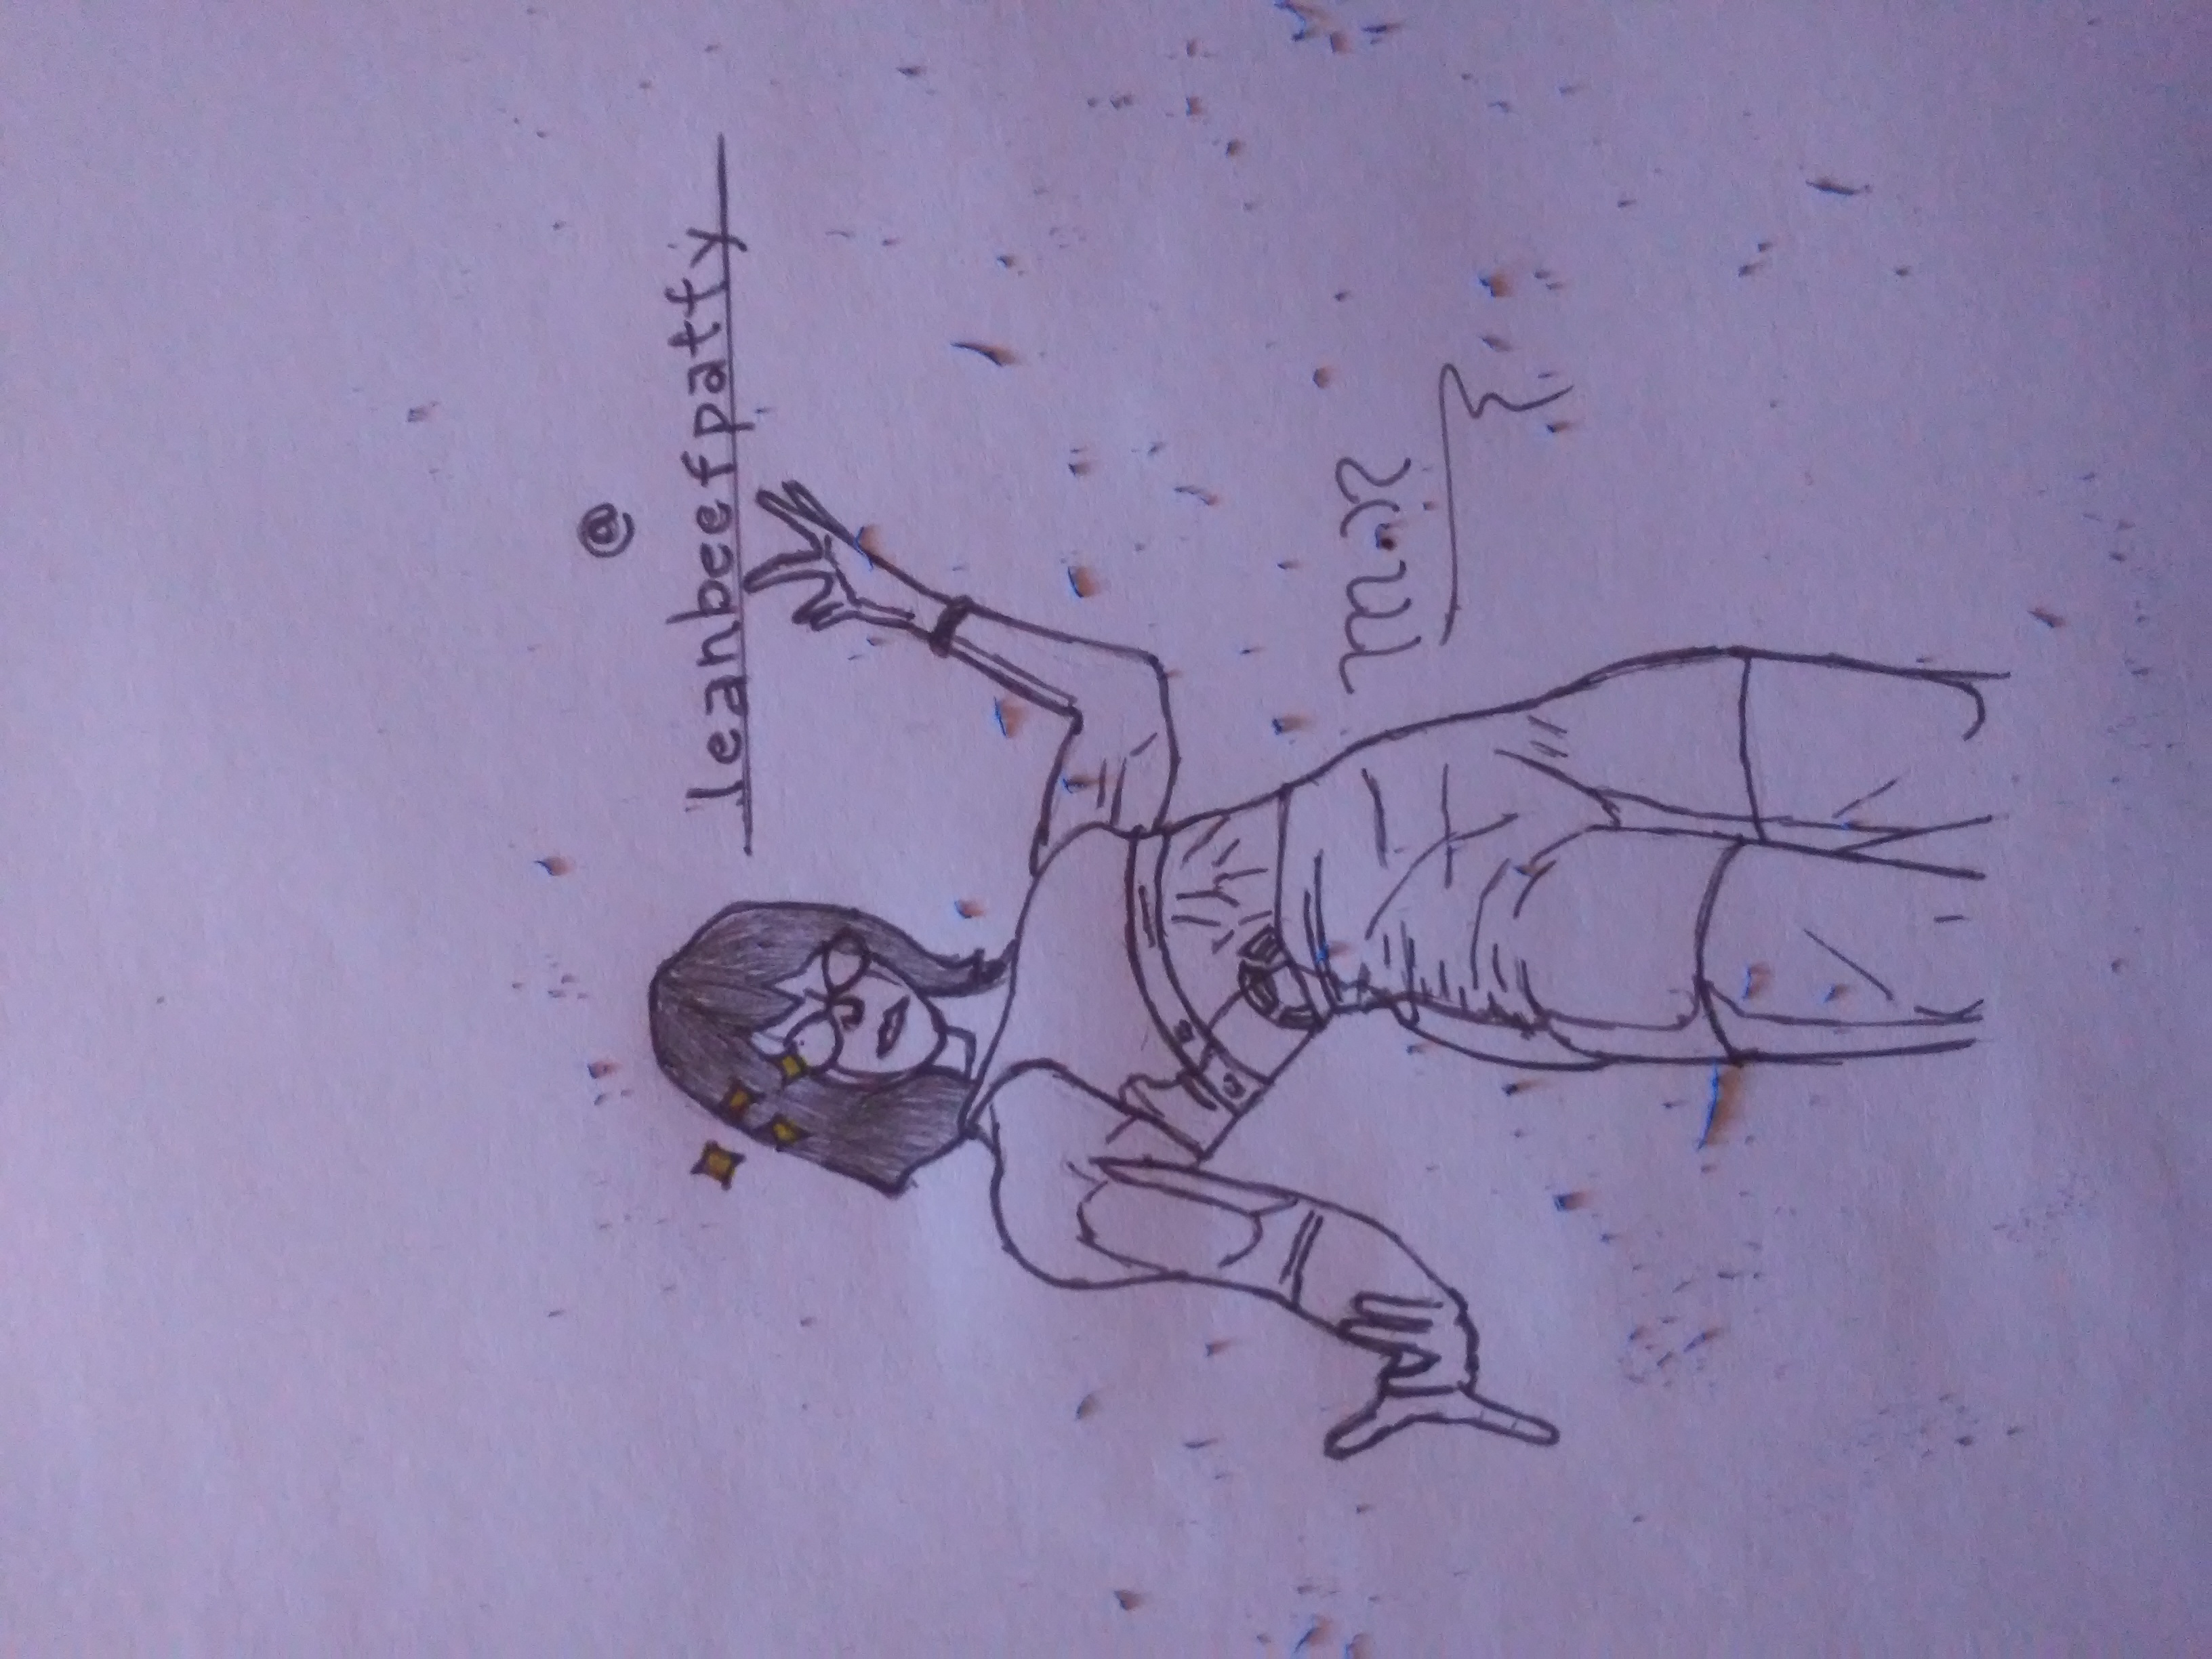 @
leanbeefpatty